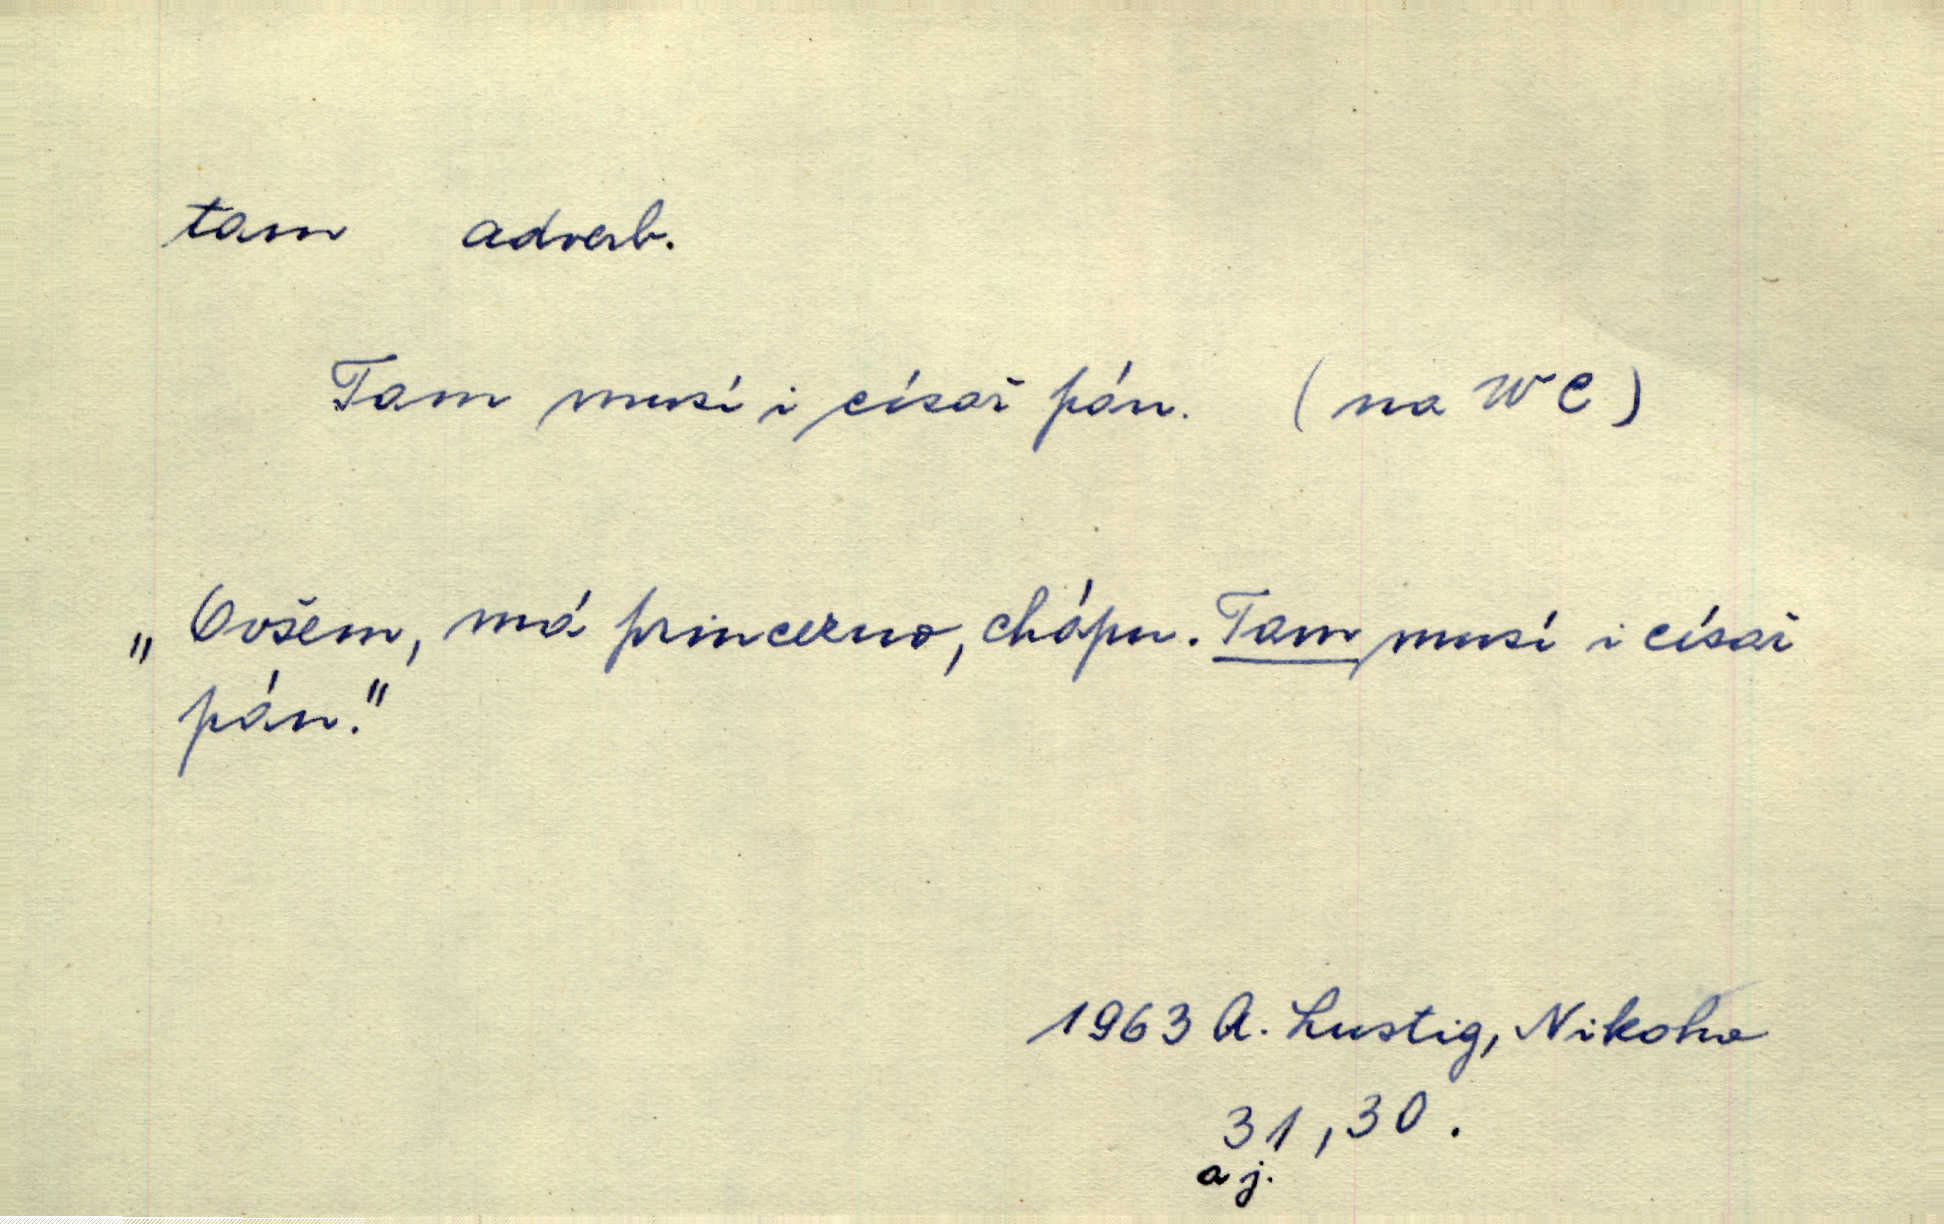 tam adverb.
Tam musí i císař pán. (na WC)
„Ovšem, má princezno, chápu. Tam musí i císař
pán."
1963 A. Lustig, Nikoho
31, 30.
a j.